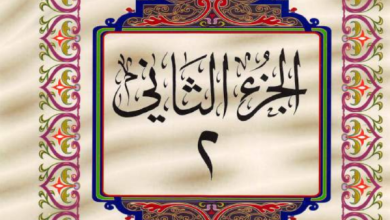 الجُزءُ الثَّانِي
٢